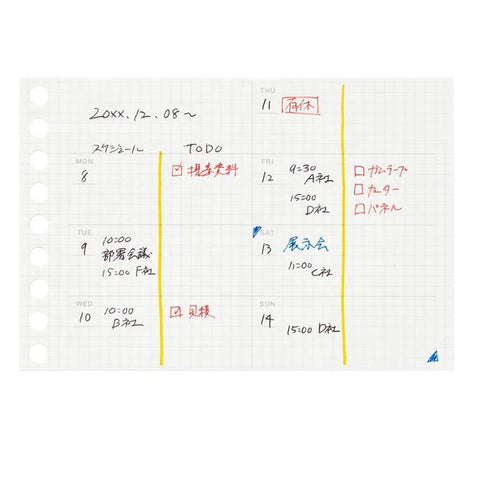 20XX.12.08〜
スケジュール TODO
MON
8
☑ 提案資料
TUE
9
10:00
部署会議
15:00 F社
WED
10
10:00
B社
☑ 見積
THU
11
有休
FRI
12
9:30
A社
15:00
D社
☐ ガムテープ
☐ カッター
☐ パネル
SAT
13
展示会
11:00
C社
SUN
14
15:00 D社